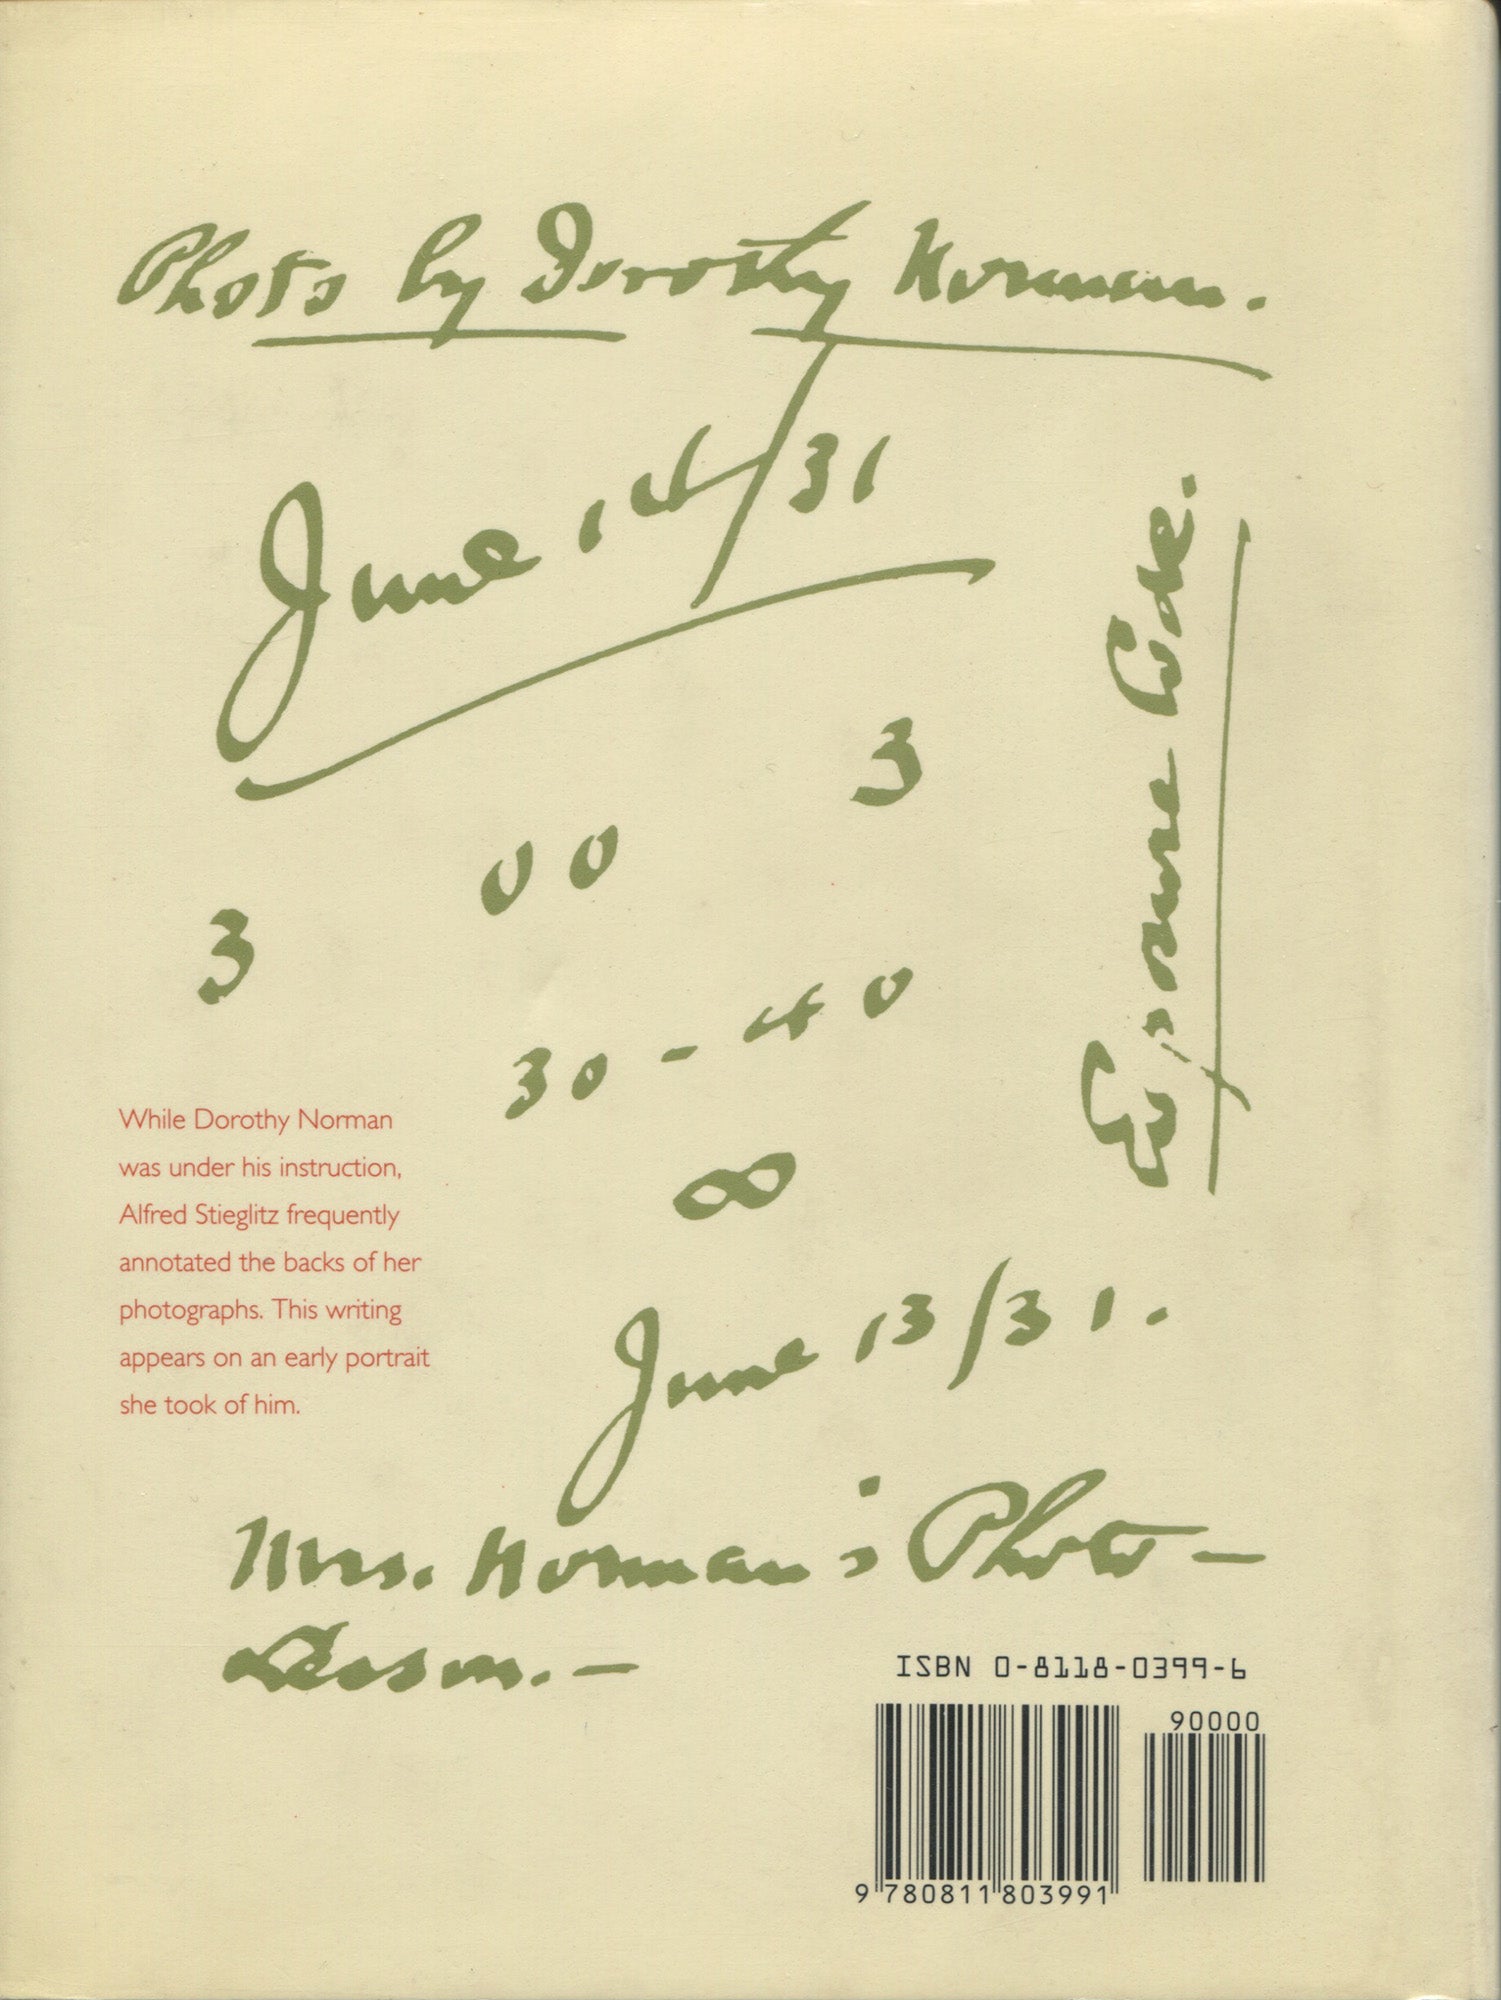 Photo by Dorothy Norman.
June 14/31
3
00
3
30-40
∞
Exposure Code.
While Dorothy Norman
was under his instruction,
Alfred Stieglitz frequently
annotated the backs of her
photographs. This writing
appears on an early portrait
she took of him.
June 13/31.
Mrs. Norman's Photo —
ISBN 0-8118-0399-6
90000
9 780811 803991